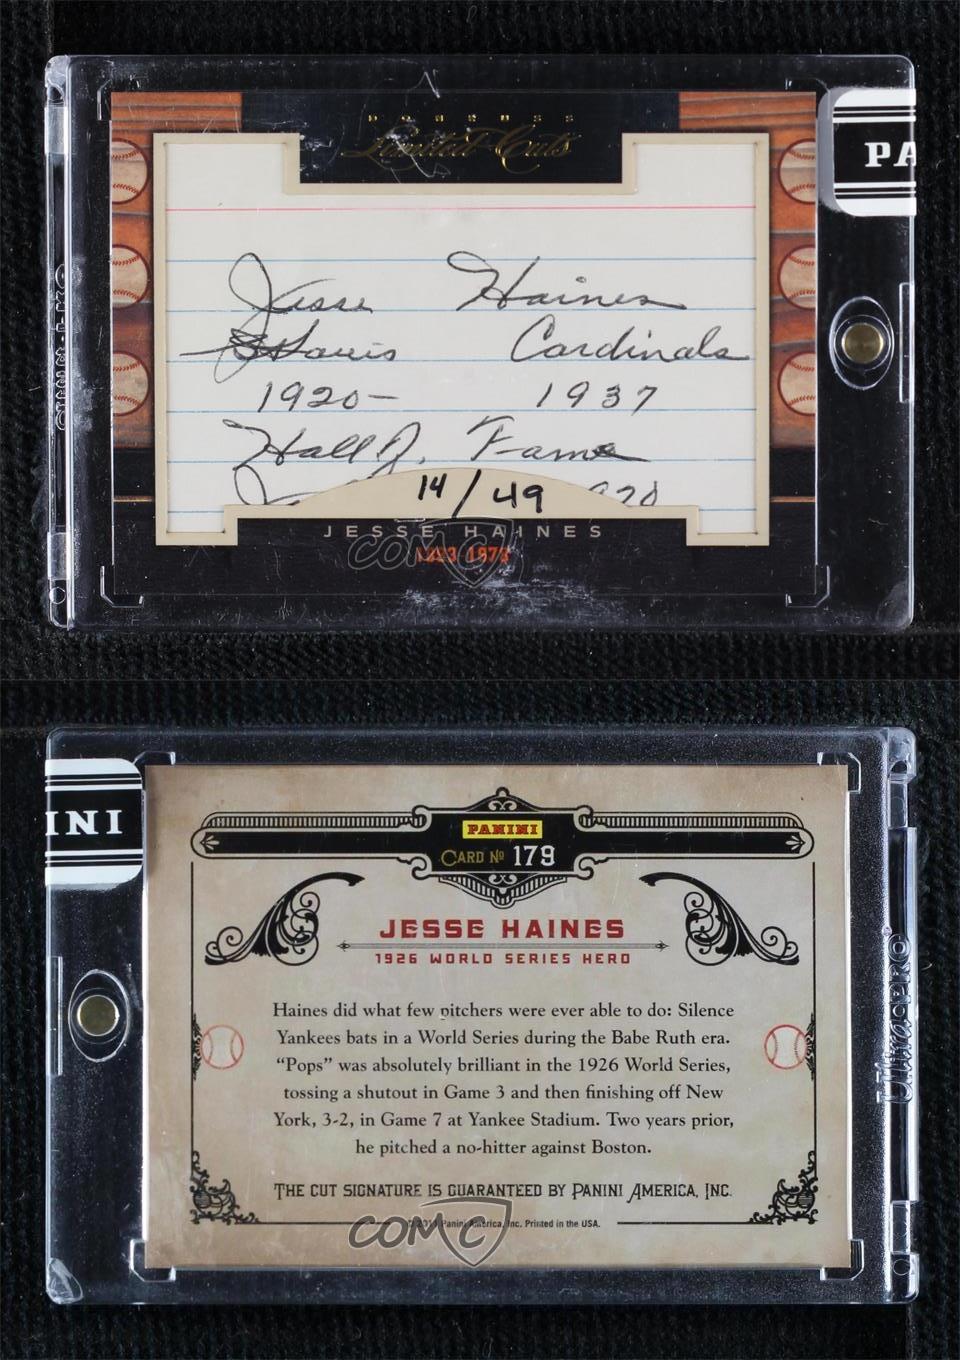 DONRUSS
Limited Cuts
PA
Jesse Haines
St Louis Cardinals
1920- 1937
Hall of Fame
14/49
JESSE HAINES
COMC
ULTRA PRO
INI
PANINI
CARD No 179
JESSE HAINES
1926 WORLD SERIES HERO
Haines did what few pitchers were ever able to do: Silence
Yankees bats in a World Series during the Babe Ruth era.
“Pops” was absolutely brilliant in the 1926 World Series,
tossing a shutout in Game 3 and then finishing off New
York, 3-2, in Game 7 at Yankee Stadium. Two years prior,
he pitched a no-hitter against Boston.
THE CUT SIGNATURE IS GUARANTEED BY PANINI AMERICA, INC.
Panini America, Inc. Printed in the USA.
COMC